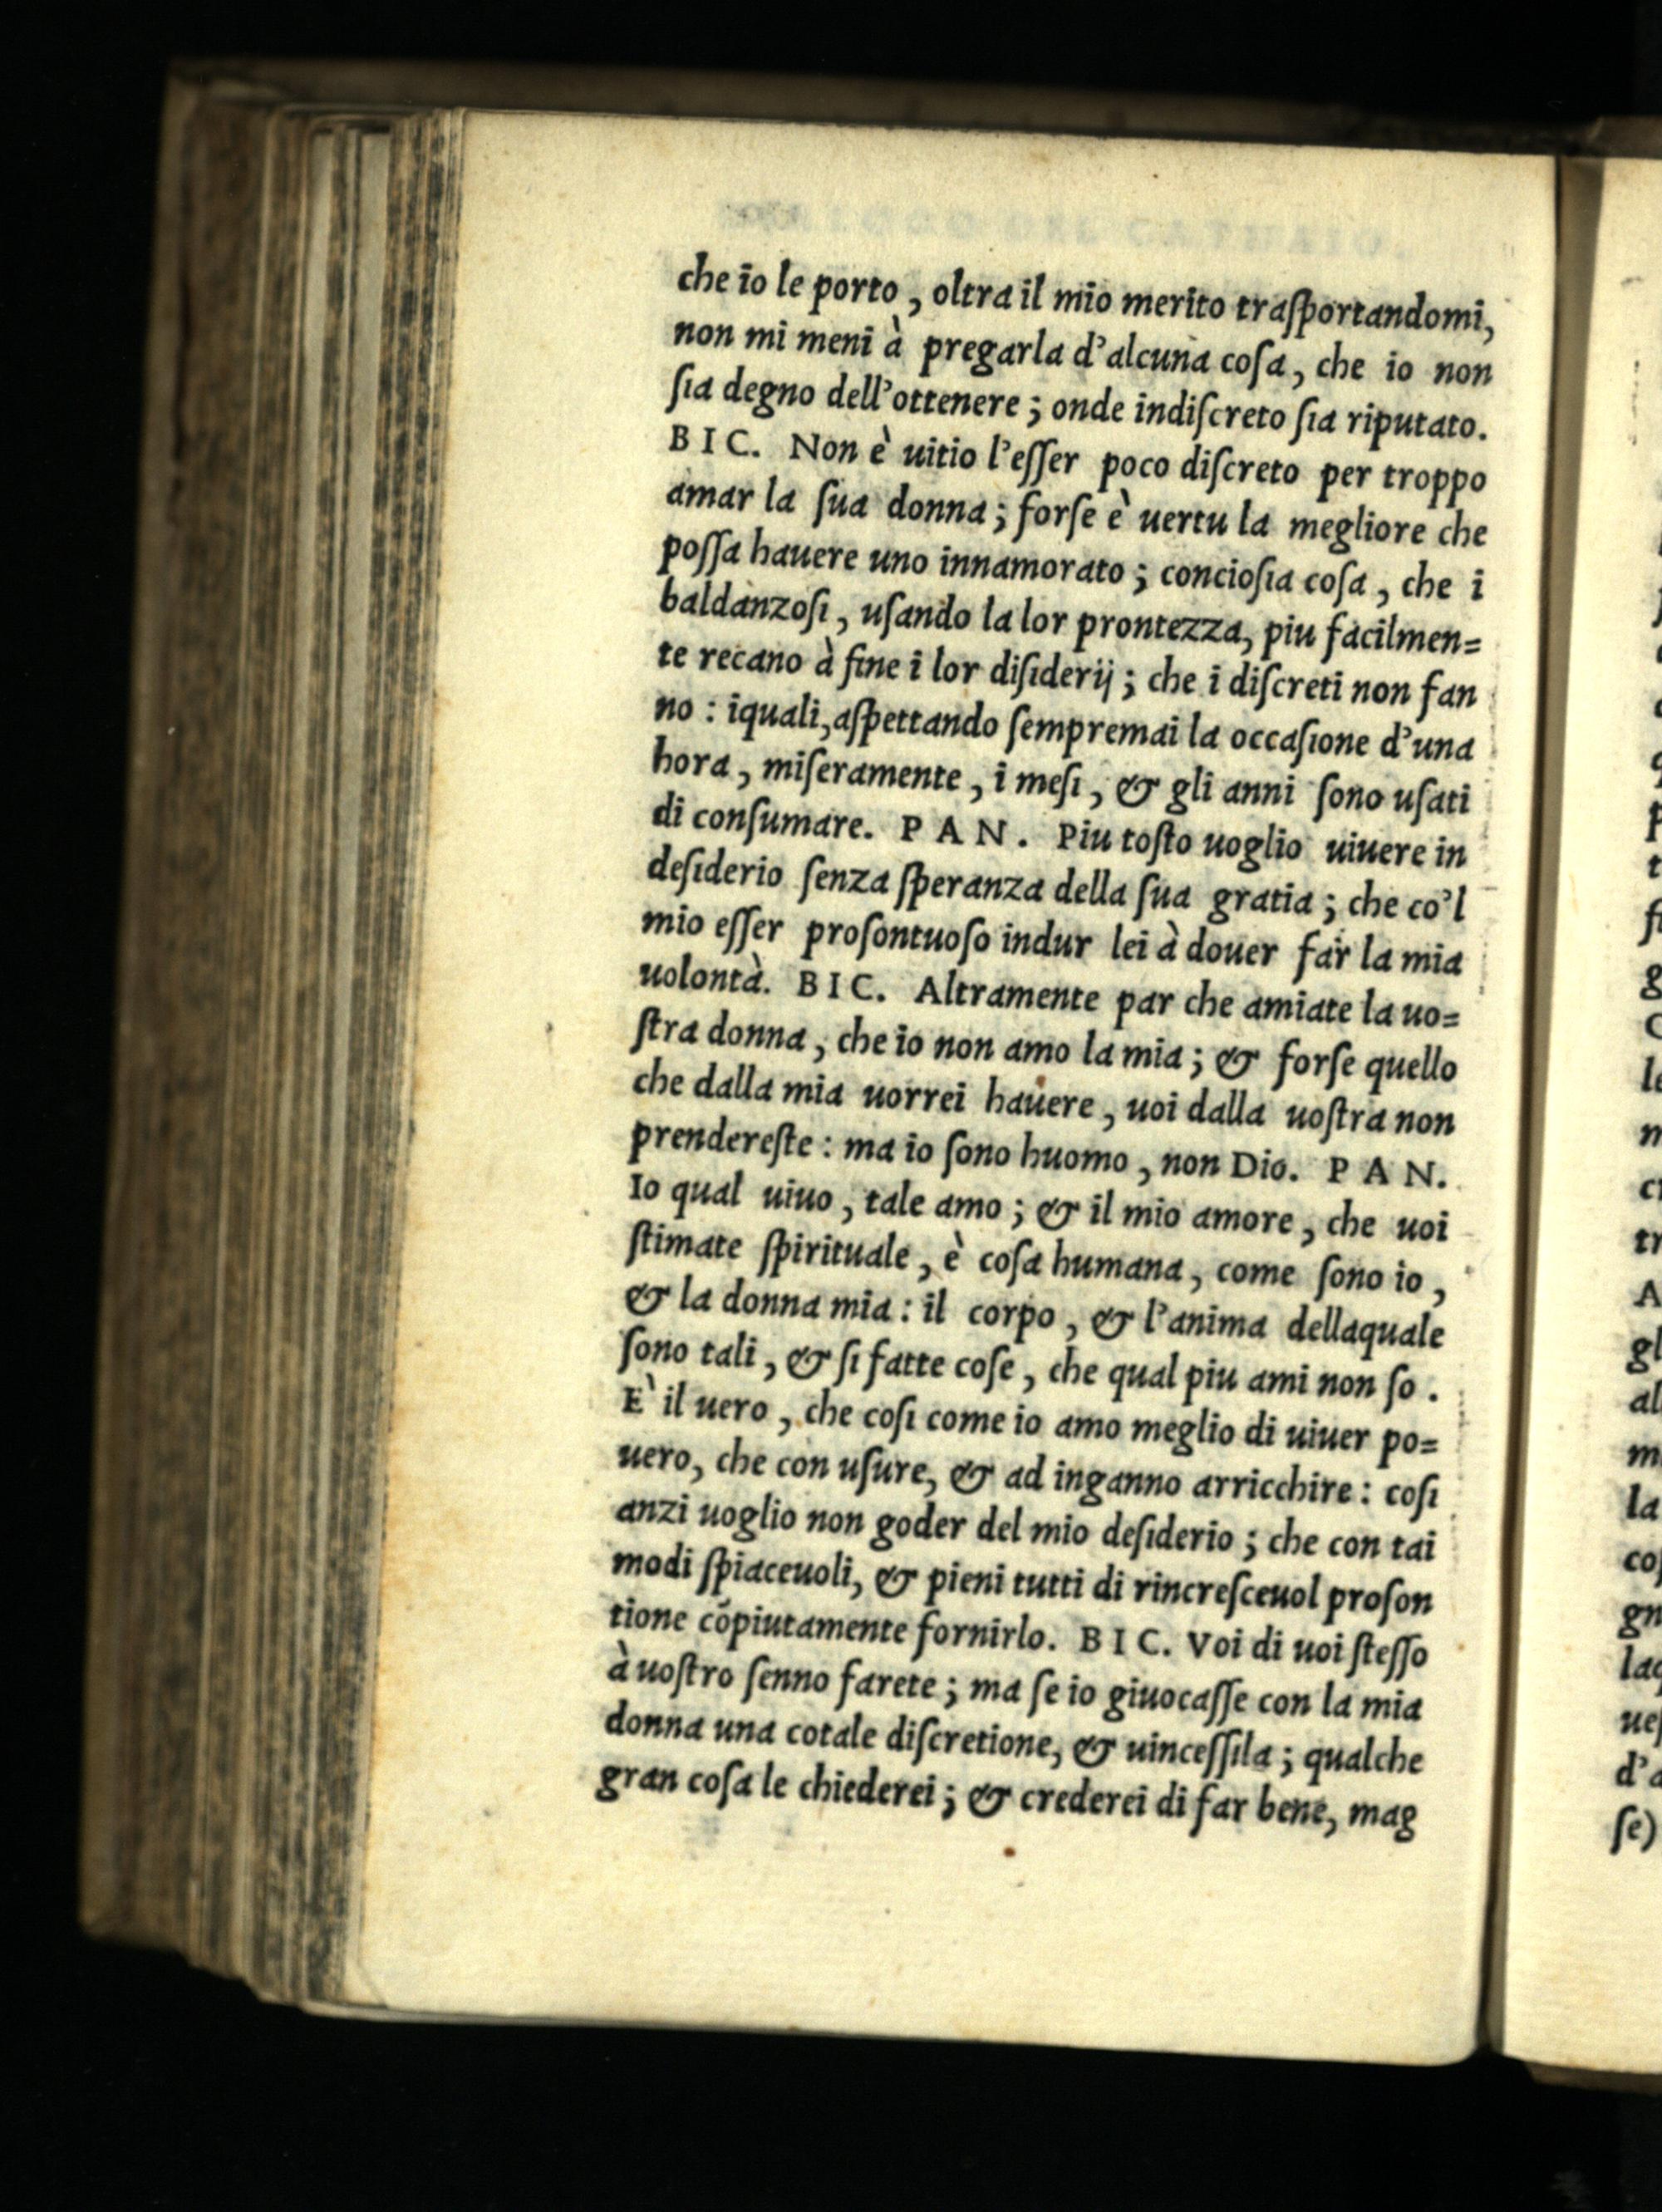 che io le porto, oltra il mio merito traſportandomi,
non mi meni à pregarla d'alcuna coſa, che io non
ſia degno dell'ottenere; onde indiſcreto ſia riputato.
BIC. Non è uitio l'eſſer poco diſcreto per troppo
amar la ſua donna; forſe è uertu la megliore che
poſſa hauere uno innamorato; concioſia coſa, che i
baldanzoſi, uſando la lor prontezza, piu facilmen=
te recano à fine i lor diſiderij; che i diſcreti non fan
no: iquali, aſpettando ſempremai la occaſione d'una
hora, miſeramente, i meſi, & gli anni ſono uſati
di conſumare. PAN. Piu toſto uoglio uiuere in
deſiderio ſenza ſperanza della ſua gratia; che co'l
mio eſſer proſontuoſo indur lei à douer far la mia
uolontà. BIC. Altramente par che amiate la uo=
ſtra donna, che io non amo la mia; & forſe quello
che dalla mia uorrei hauere, uoi dalla uoſtra non
prendereſte: ma io ſono huomo, non Dio. PAN.
Io qual uiuo, tale amo; & il mio amore, che uoi
ſtimate ſpirituale, è coſa humana, come ſono io,
& la donna mia: il corpo, & l'anima dellaquale
ſono tali, & ſi fatte coſe, che qual piu ami non ſo.
E` il uero, che coſi come io amo meglio di uiuer po=
uero, che con uſure, & ad inganno arricchire: coſi
anzi uoglio non goder del mio deſiderio; che con tai
modi ſpiaceuoli, & pieni tutti di rincreſceuol proſon
tione cõpiutamente fornirlo. BIC. Voi di uoi ſteſſo
à uoſtro ſenno farete; ma ſe io giuocaſſe con la mia
donna una cotale diſcretione, & uinceſſila; qualche
gran coſa le chiederei; & crederei di far bene, mag